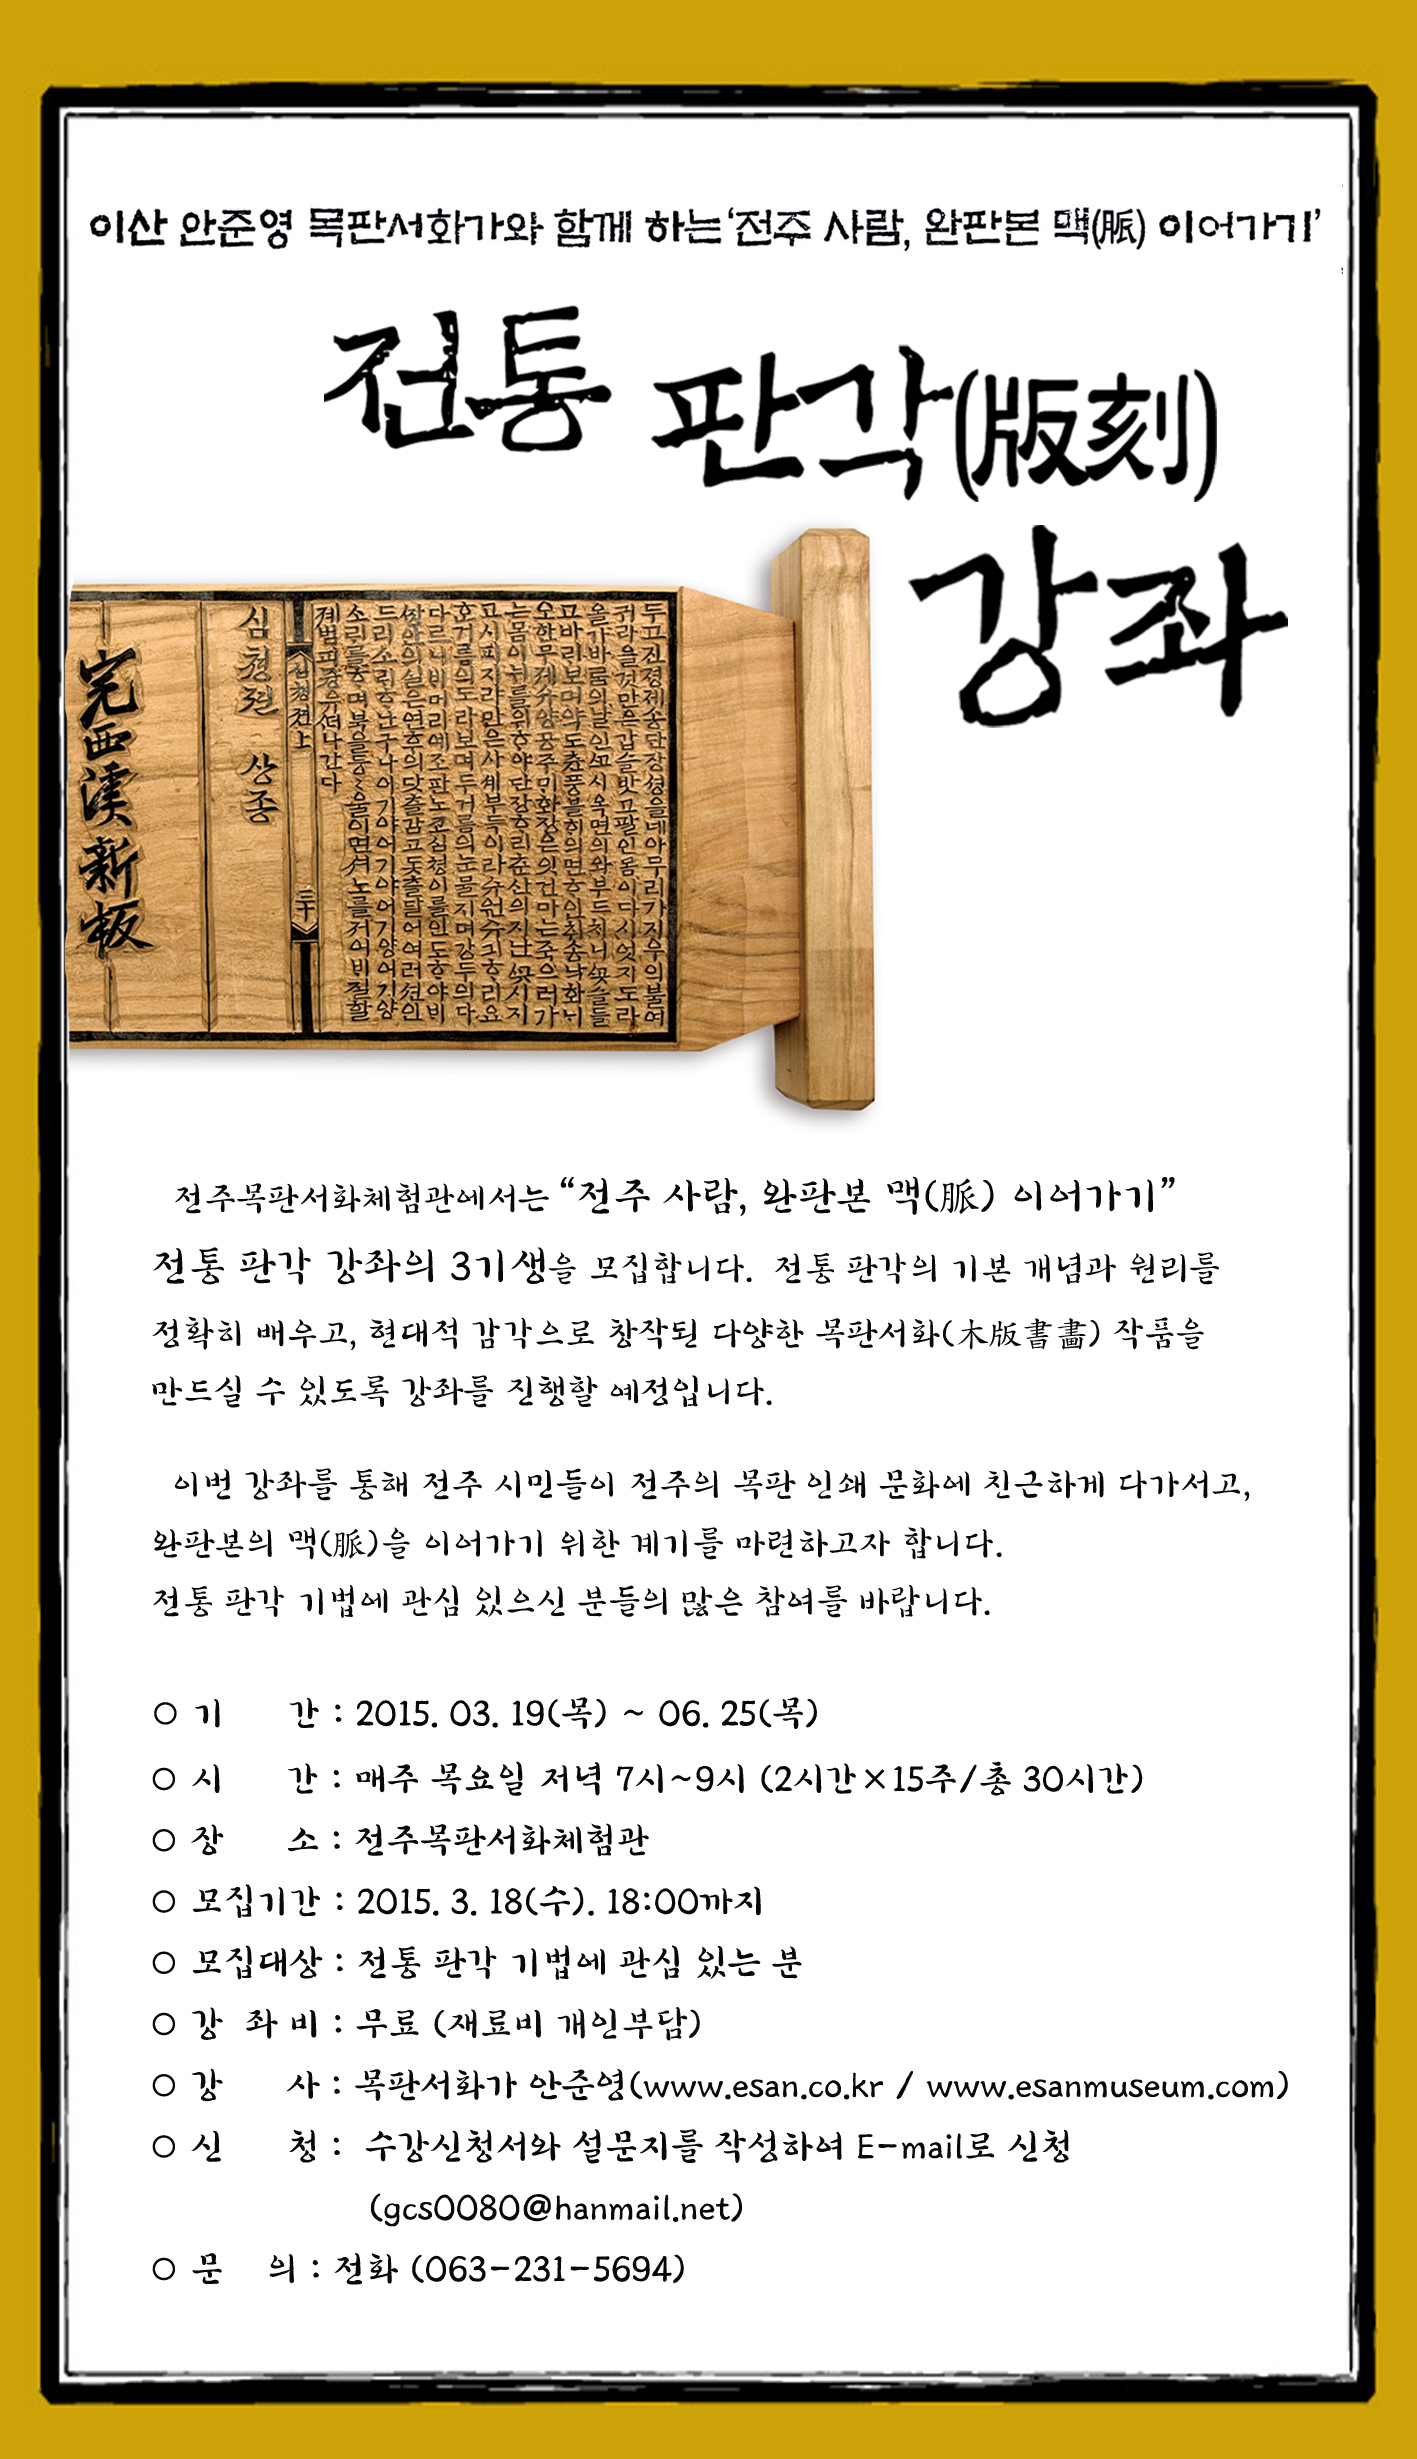 이산 안준영 목판서화가와 함께 하는 ‘전주 사람, 완판본 맥(脈) 이어가기’
전통 판각(版刻)
강좌
두고진졍제송단장셩을네아무리가지우의불여
귀라을것만은갑슬밧고팔인몸이다시엇지도라
심쳥젼 상죵
심쳥젼上
三十
계범피즁유떠나간다
完西溪新板
전주목판서화체험관에서는 “전주 사람, 완판본 맥(脈) 이어가기”
전통 판각 강좌의 3기생을 모집합니다. 전통 판각의 기본 개념과 원리를
정확히 배우고, 현대적 감각으로 창작된 다양한 목판서화(木版書畵) 작품을
만드실 수 있도록 강좌를 진행할 예정입니다.
이번 강좌를 통해 전주 시민들이 전주의 목판 인쇄 문화에 친근하게 다가서고,
완판본의 맥(脈)을 이어가기 위한 계기를 마련하고자 합니다.
전통 판각 기법에 관심 있으신 분들의 많은 참여를 바랍니다.
○ 기 간 : 2015. 03. 19(목) ~ 06. 25(목)
○ 시 간 : 매주 목요일 저녁 7시~9시 (2시간×15주/총 30시간)
○ 장 소 : 전주목판서화체험관
○ 모집기간 : 2015. 3. 18(수). 18:00까지
○ 모집대상 : 전통 판각 기법에 관심 있는 분
○ 강 좌 비 : 무료 (재료비 개인부담)
○ 강 사 : 목판서화가 안준영(www.esan.co.kr / www.esanmuseum.com)
○ 신 청 : 수강신청서와 설문지를 작성하여 E-mail로 신청
(gcs0080@hanmail.net)
○ 문 의 : 전화 (063-231-5694)